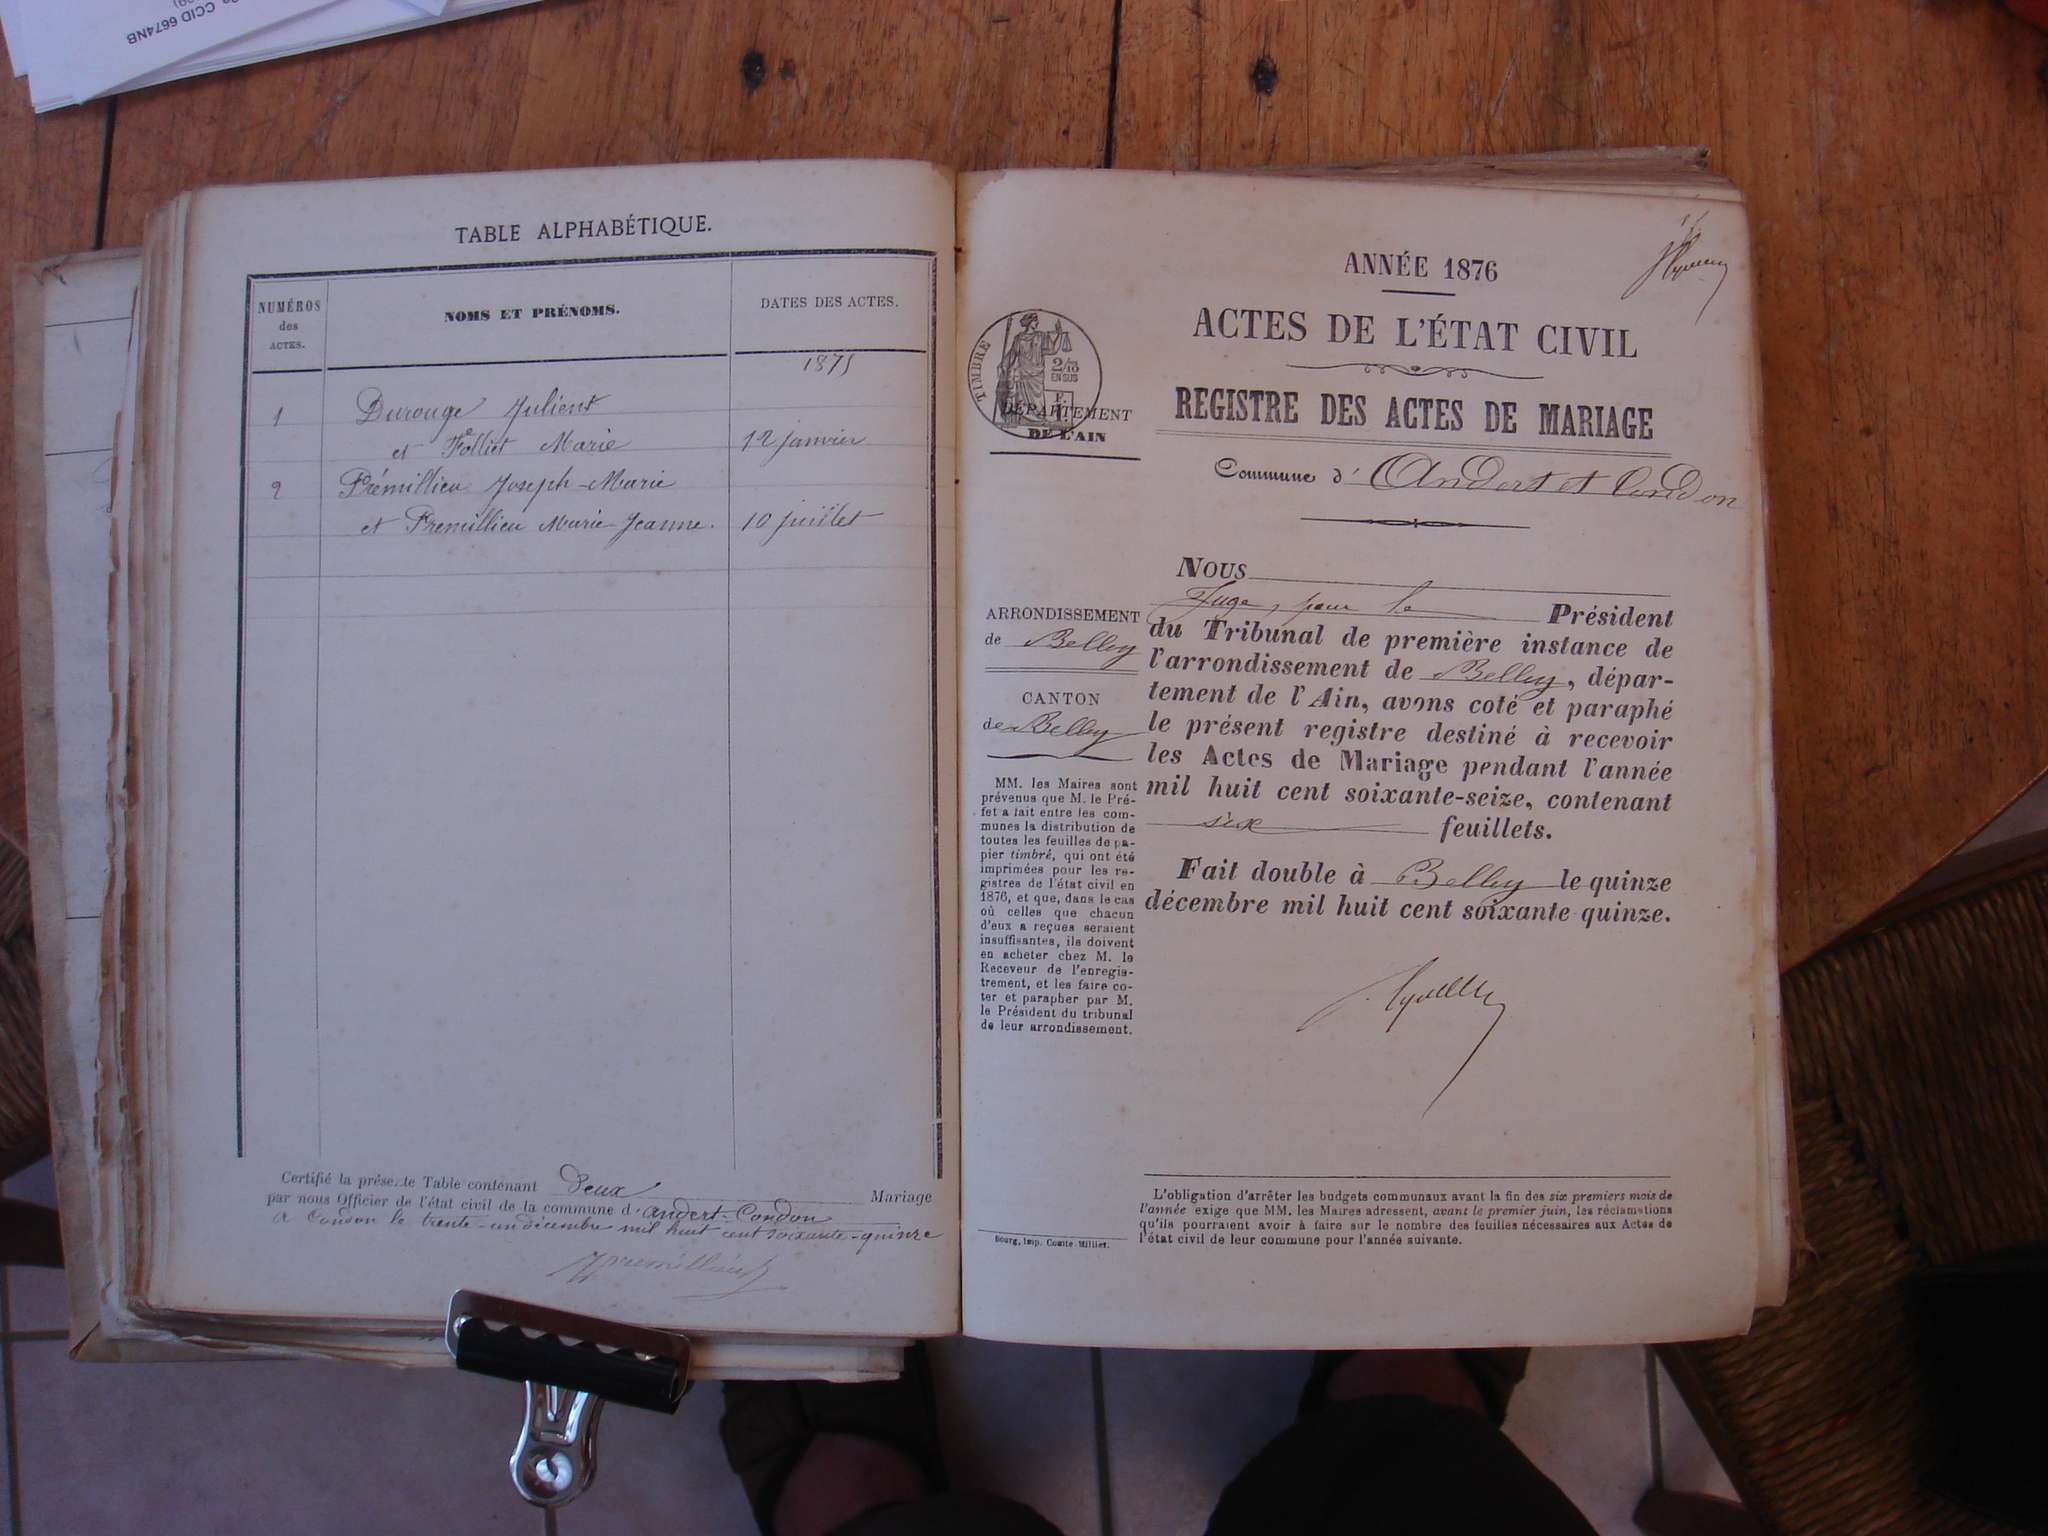 CCID 6674NB
TABLE ALPHABÉTIQUE.
NUMÉROS
des
ACTES.
NOMS ET PRÉNOMS.
DATES DES ACTES.
1875
1 Durouge Julient
et Folliet Marie 12 janvier
2 Prémillieu Joseph-Marie
et Premillieu Marie-Jeanne. 10 juillet
Certifié la présente Table contenant deux Mariage
par nous Officier de l'état civil de la commune d'andert-Condon
A Condon le trente-un décembre mil huit cent soixante-quinze
ANNÉE 1876
ACTES DE L'ÉTAT CIVIL
REGISTRE DES ACTES DE MARIAGE
Commune d' Andert et Condon
TIMBRE
2/10
EN SUS
DÉPARTEMENT
DE L'AIN
ARRONDISSEMENT
de Belley
CANTON
de Belley
MM. les Maires sont
prévenus que M. le Pré-
fet a fait entre les com-
munes la distribution de
toutes les feuilles de pa-
pier timbré, qui ont été
imprimées pour les re-
gistres de l'état civil en
1876, et que, dans le cas
où celles que chacun
d'eux a reçues seraient
insuffisantes, ils doivent
en acheter chez M. le
Receveur de l'enregis-
trement, et les faire co-
ter et parapher par M.
le Président du tribunal
de leur arrondissement.
Bourg, imp. Comte-Milliet.
NOUS
Juge, pour le Président
du Tribunal de première instance de
l'arrondissement de Belley, dépar-
tement de l'Ain, avons coté et paraphé
le présent registre destiné à recevoir
les Actes de Mariage pendant l'année
mil huit cent soixante-seize, contenant
six feuillets.
Fait double à Belley le quinze
décembre mil huit cent soixante quinze.
L'obligation d'arrêter les budgets communaux avant la fin des six premiers mois de
l'année exige que MM. les Maires adressent, avant le premier juin, les réclamations
qu'ils pourraient avoir à faire sur le nombre des feuilles nécessaires aux Actes de
l'état civil de leur commune pour l'année suivante.